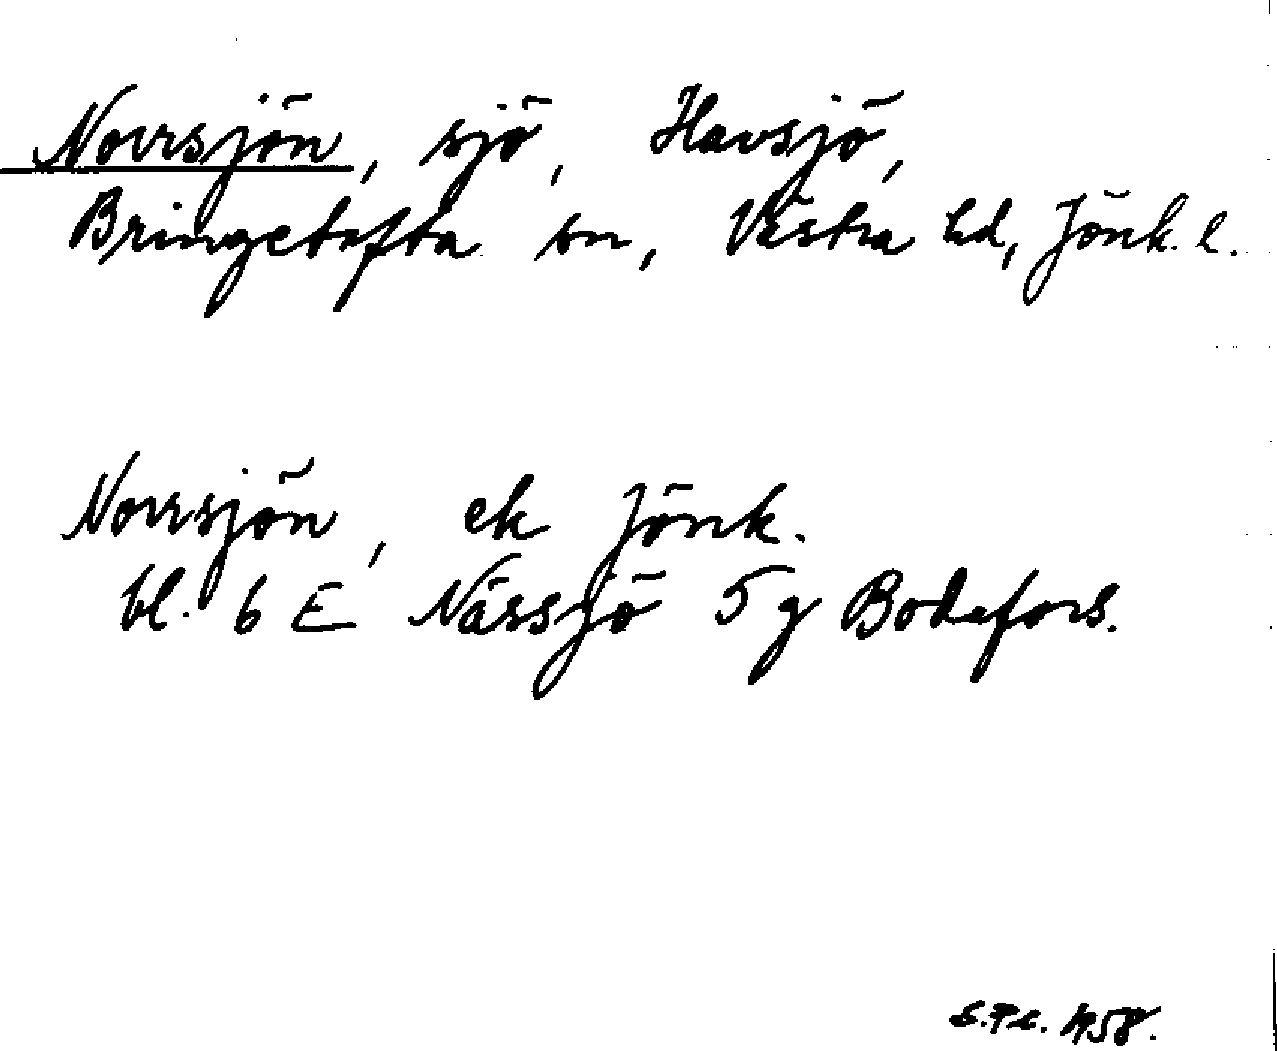 Norrsjön, sjö, Havsjö,
Bringetofta sn, Västra hd, Jönk. l.
Norrsjön, ek Jönk.
bl. 6 E Nässjö 5 g Bodafors.
1958.